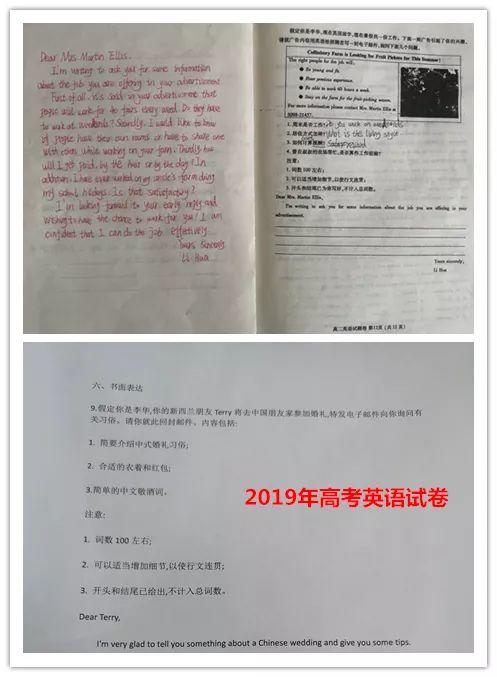 Dear Mrs Martin Ellis.
I'm writing to ask you for some information
about the job you are offering in your advertisement
First of all, it's said in your advertisement that
people will work for 40 hours every week. Do they have
to work at weekends? Secondly, I would like to know
if people have their own rooms or have to share one
with others while working on your farm. Thirdly how
will I get paid, by the hour or by the day? In
addition, I have ever worked on my uncle's farm during
my school holidays. Is that satisfactory?
I'm looking forward to your early reply and
wishing to have the chance to work for you! I am
confident that I can do the job effectively.
Yours Sincerely
Li Hua
假定你是李华,现在英国留学,想在暑假找一份工作。下面一则广告引起了你的兴趣,
请就广告内容用英语给招聘者写一封电子邮件,询问下面几个问题。
Collinbary Farm is Looking for Fruit Pickers for This Summer!
The right people for the job will:
Be young and fit.
Have previous experience.
Be able to work 40 hours a week.
Stay on the farm for the fruit-picking season.
For more information please contact Mrs. Martin Ellis at
9268-21457.
1. 周末是否工作? Do you work on weekends
2. 居住方式怎样? What is the living style
3. 如何计算报酬?
4. 曾在叔叔的农场帮忙,是否算作工作经验?
注意:
1. 词数 100 左右;
2. 可以适当增加细节,以使行文连贯;
3. 开头和结尾已为你写好,不计入总词数。
Dear Mrs. Martin Ellis,
I'm writing to ask you for some information about the job you are offering in your
advertisement.
Yours sincerely,
Li Hua
高二英语试题卷 第12页 (共12页)
六、书面表达
9.假定你是李华,你的新西兰朋友 Terry 将去中国朋友家参加婚礼,特发电子邮件向你询问有
关习俗。请你就此回封邮件。内容包括:
1. 简要介绍中式婚礼习俗;
2. 合适的衣着和红包;
3.简单的中文敬酒词。
2019年高考英语试卷
注意:
1. 词数 100 左右;
2. 可以适当增加细节,以使行文连贯;
3. 开头和结尾已给出,不计入总词数。
Dear Terry,
I'm very glad to tell you something about a Chinese wedding and give you some tips.